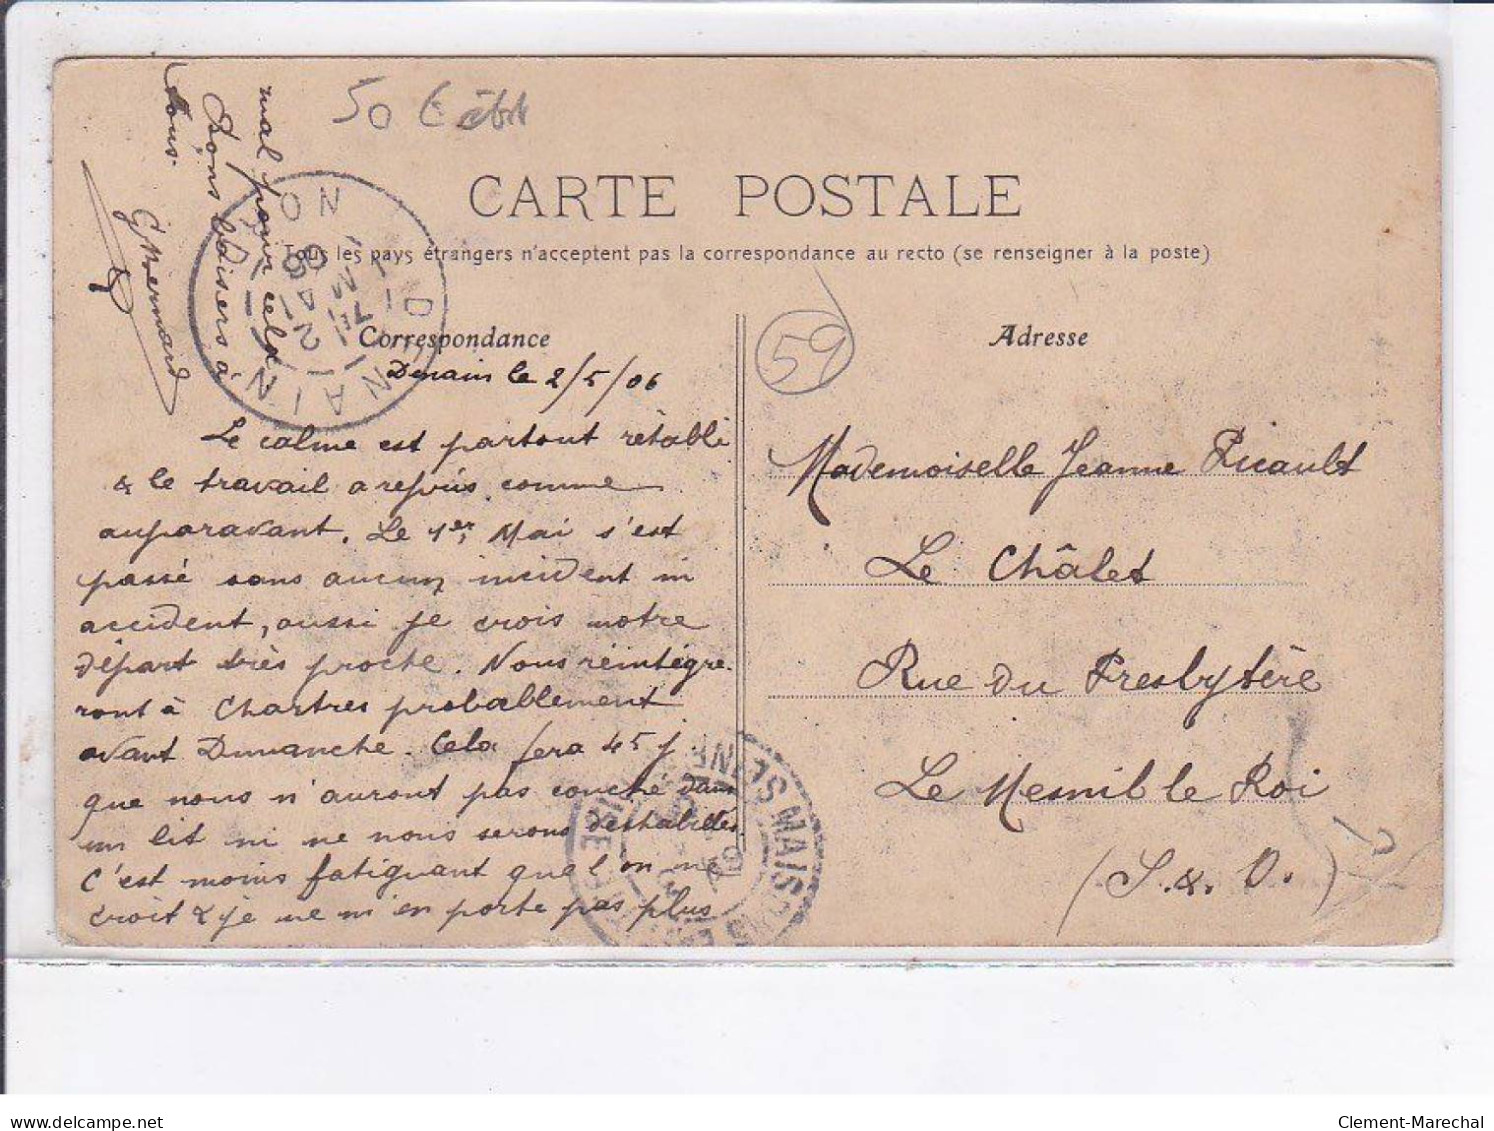 50 € état
CARTE POSTALE
Tous les pays étrangers n'acceptent pas la correspondance au recto (se renseigner à la poste)
Correspondance
Denain le 2/5/06
Le calme est partout rétabli
& le travail a repris comme
auparavant. Le 1er Mai s'est
passé sans aucun incident ni
accident, aussi je crois notre
départ très proche. Nous réintégre-
ront à Chartres probablement
avant Dimanche. Cela fera 45 j
que nous n'auront pas couché dans
un lit ni ne nous serons déshabillés.
C'est moins fatiguant que l'on ne
croit & je ne m'en porte pas plus
mal pour cela
Bons baisers à
tous.
GBernard
DENAIN
NORD
2 - 5
06
59
Adresse
Mademoiselle Jeanne Picault
Le Châlet
Rue du Presbytère
Le Mesnil le Roi
(S. & O.)
MAISONS
SEINE
Clement-Marechal
delcampe.net